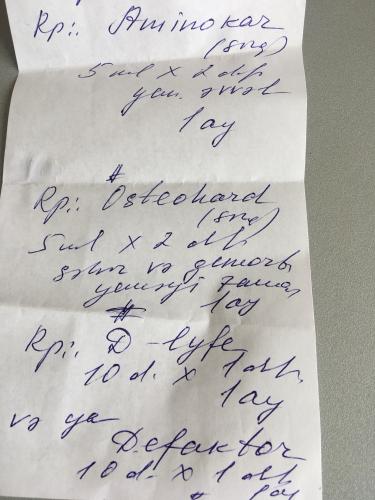 Rp: Aminokar
(şırə)
5 ml x 2 dəf
yem. əvvəl
1 ay
#
Rp: Osteohard
(şırə)
5 ml x 2 dəf
səhər və günorta
yeməyi zamanı
1 ay
#
Rp: D-lyfe
10 d. x 1 dəf.
1 ay
və ya
Defaktor
10 d. x 1 dəf
# 1 ay